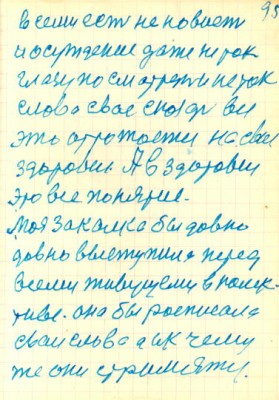 95
всем есть не повиет
и осуждение даже не так
глазу посмотреть и не так
слова свое сказал все
это отражается на свое
здоровии. А в здоровии
это все понятие.
Моя закалка бы давно
давно выступила перед
всеми живущему в колек-
тиве. она бы росписала
сваи слова а и к чему
же они стремяться.